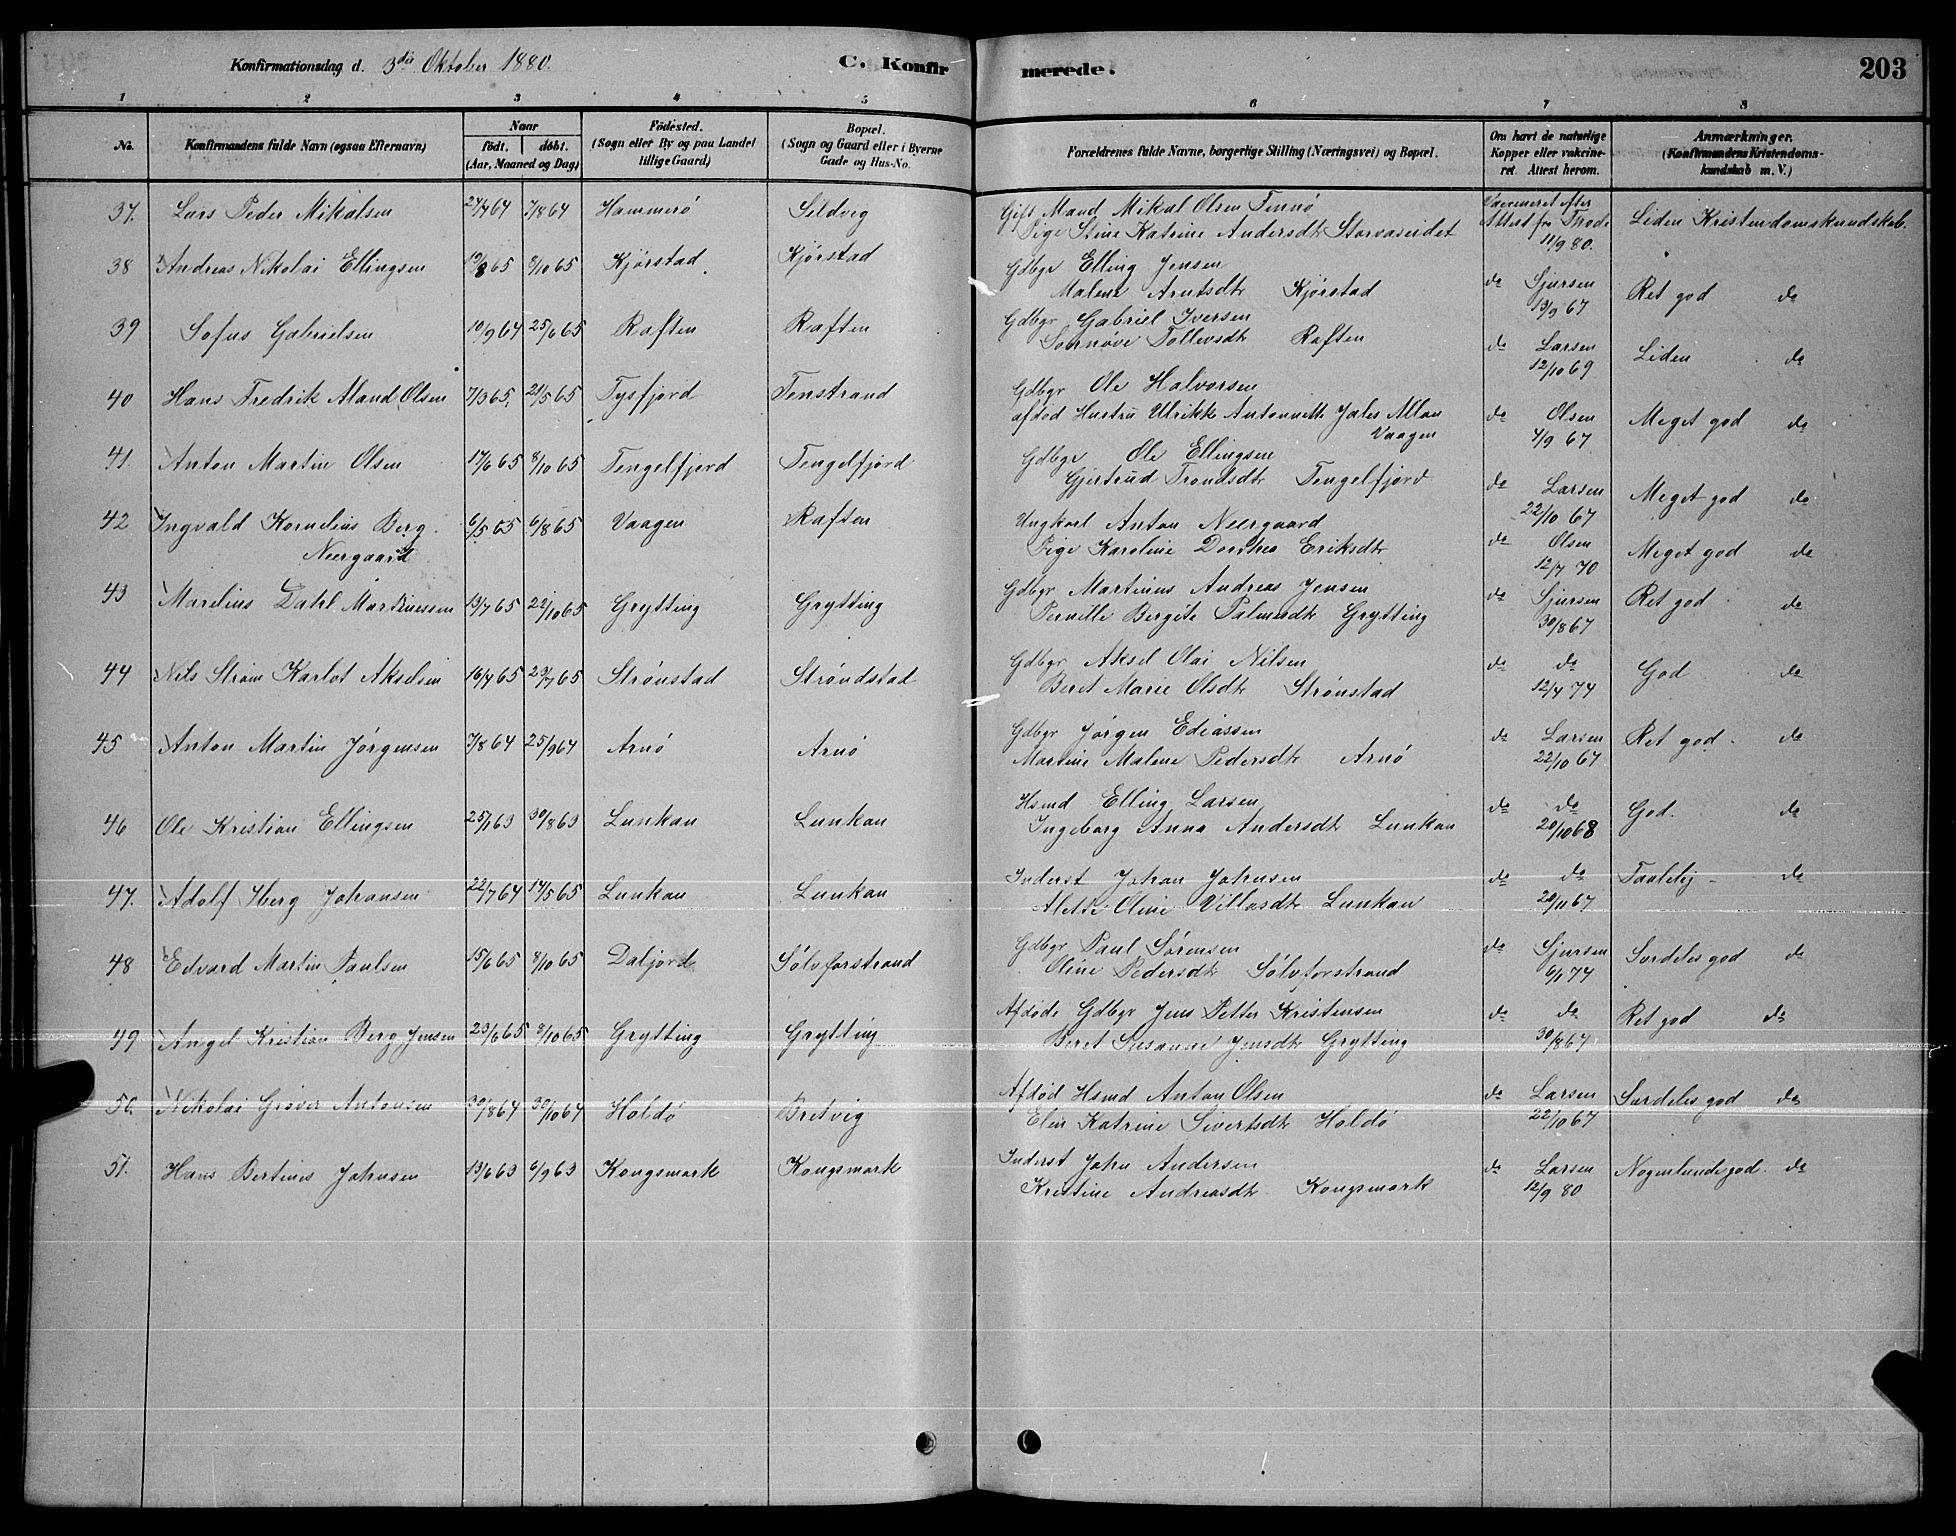 Konfirmationsdag d. 3die Oktober 1880. C. Konfirmerede. 203
1 2 3 4 5 6 7 8
No. Konfirmandens fulde Navn (ogsaa Efternavn) Naar födt. döbt. (Aar, Maaned og Dag) Födested. (Sogn eller By og paa Landet tillige Gaard) Bopæl. (Sogn og Gaard eller i Byerne Gade og Hus-No. Forældrenes fulde Navne, borgerlige Stilling (Næringsvei) og Bopæl. Om havt de naturlige Kopper eller vakcineret. Attest herom. Anmærkninger. (Konfirmandens Kristendomskundskab m. V.)
37. Lars Peder Mikalsen 24/4 64 7/8 64 Hammerö Sildvig Gift Mand Mikal Olsen Finnö Vaccineret efter
Pige Stine Katrine Andersdtr Storvaseidet Attest fra Thode 11/9 80. Liden Kristendomskundskab.
38 Andreas Nikolai Ellingsen 19/8 65 8/10 65 Kjörstad Kjörstad Gdbgr Elling Jensen
Malene Arntsdtr Kjörstad do Sjursen 13/9 67 Ret god do
39 Sofus Gabrielsen 10/9 64 25/6 65 Raften Raften Gdbgr Gabriel Iversen
Tollevsdtr Raften do Larsen 12/10 69 Liden do
40 Hans Fredrik Aland Olsen 7/3 65. 21/5 65 Tysfjord Tenstrand Gdbgr Ole Halvorsen
afdöd Hustru Ulrikke Antonette Vaagen do Olsen 4/9 67 Meget god do
41. Anton Martin Olsen 17/6 65 8/10 65 Tengelfjord Tengelfjord Gdbgr Ole Ellingsen
Gjertrud Trondsdtr Tengelfjord do Larsen 22/10 67 Meget god do
42 Ingvald Kornelius Berg Neergaard 6/5 65 6/8 65 Vaagen Raften Ungkarl Anton Neergaard
Pige Karoline Dorthea Eriksdtr do Olsen 12/7 70 Meget god do
43 Marelius Dahl Martinussen 13/7 65 22/10 65 Grytting Grytting Gdbgr Martinus Andreas Jensen
Pernille Bergite Palmesdtr Grytting do Sjursen 30/8 67 Ret god do
44 Nils Ström Karlot Akselsen 16/4 65 23/7 65 Strönstad Ströndstad Gdbgr Aksel Olai Nilsen
Beret Marie Olsdtr Strönstad do do 12/4 74 God do
45 Anton Martin Jörgensen 7/8 64 25/9 64 Arnö Arnö Gdbgr Jörgen Ediassen
Martine Malene Pedersdtr Arnö do Larsen 22/10 67 Ret god. do
46 Ole Kristian Ellingsen 25/1 63 30/8 63 Lunkan Lunkan Hsmd Elling Larsen
Ingeborg Anna Andersdtr Lunkan do do 20/10 68 God. do
47. Adolf Iberg Johansen 22/7 64 14/5 65 Lunkan Lunkan Inderst Johan Johnsen
Alette Oline Villasdtr Lunkan do do 20/11 67 Taalelig do
48 Edvard Martin Paulsen 15/6 65 8/10 65 Daljord Sölvforstrand Gdbgr Paul Sörensen
Oline Pedersdtr Sölvforstrand do Sjursen 6/1 74 Særdeles god do
49 Angel Kristian Berg Jensen 23/6 65 8/10 65 Grytting Grytting Afdöde Gdbgr Jens Petter Kristensen
Beret Susanne Jensdtr Grytting do do 30/8 67 Ret god do
50. Nikolai Grøver Antonsen 30/8 64 30/10 64 Holdö Bretvig Afdöd Hsmd Anton Olsen
Elen Katrine Sivertsdtr Holdö do Larsen 22/10 67 Særdeles god do
51. Hans Bertinus Johnsen 13/6 63 6/9 63 Kongsmark Kongsmark Inderst John Andersen
Kristine Andreasdtr Kongsmark do Larsen 12/9 80 Nogenlunde god. do